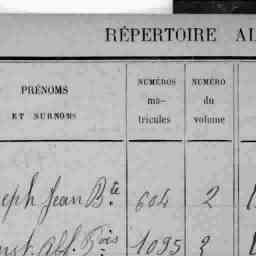 RÉPERTOIRE AL
PRÉNOMS
ET SURNOMS
NUMÉROS
ma-
tricules
NUMÉRO
du
volume
eph Jean Bte 604 2
Alf. Fois 1095 2